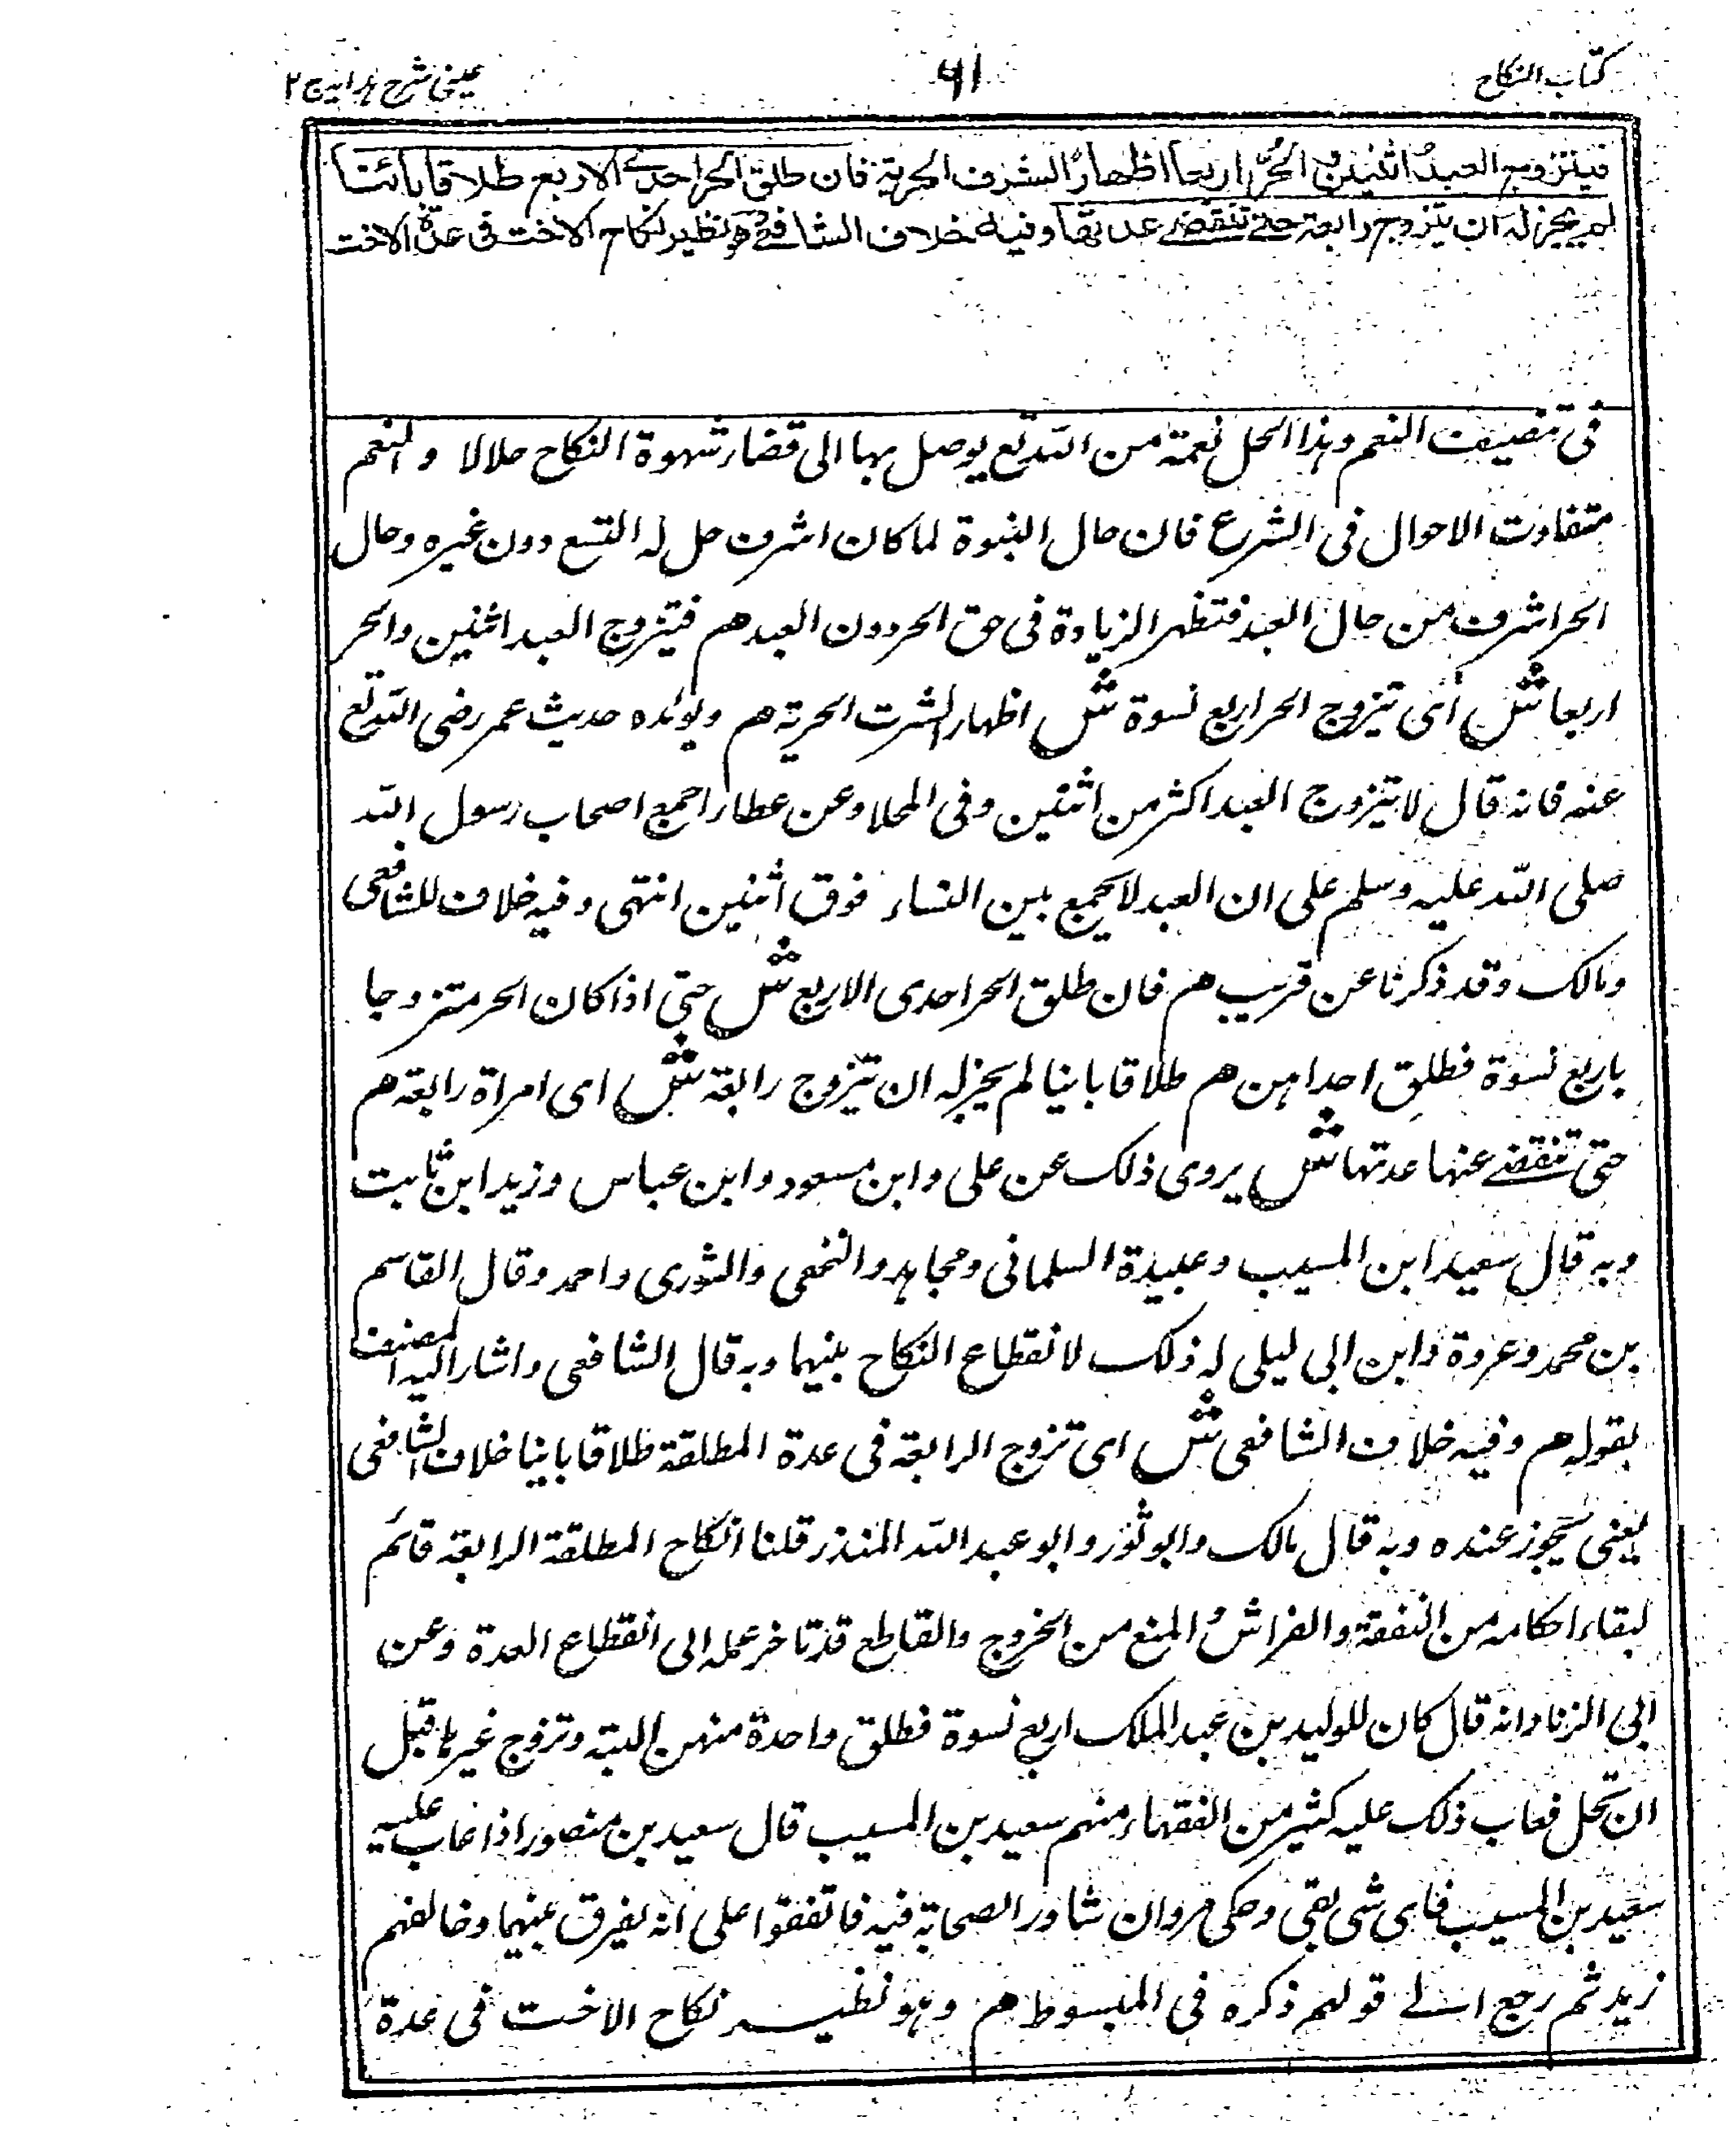 كتاب النكاح
٦١
عينى شرح هدايه ج ٢
فيتزوج العبد اثنين والحُرُّ اربعا اظهارًا لشرف الحرية فان طلق الحر احدى الاربع طلاقا بائنا
لم يجز له ان يتزوج رابعة حتى تنقضى عدتها وفيه خلاف الشافعى وهو نظير نكاح الاخت فى عدة الاخت
فى تنصيف النعم وهذا الحل نعمة من الله تع يوصل بها الى قضاء شهوة النكاح حلالا والنعم
متفاوت الاحوال فى الشرع فان حال النبوة لما كان اشرف حل له التسع دون غيره وحال
الحر اشرف من حال العبد فتظهر الزيادة فى حق الحر دون العبد هم فيتزوج العبد اثنين والحر
اربعا ش اى تيزوج الحر اربع نسوة ش اظهار الشرف الحرية هم ويؤيده حديث عمر رضى الله تع
عنه فانه قال لا تيزوج العبد اكثر من اثنتين وفى المحلا وعن عطاء اجمع اصحاب رسول الله
صلى الله عليه وسلم على ان العبد لا يجمع بين النساء فوق اثنين انتهى وفيه خلاف للشافعى
ومالك وقد ذكرنا عن قريب هم فان طلق الحر احدى الاربع ش حتى اذا كان الحر متزوجا
باربع نسوة فطلق احداهن هم طلاقا باينا لم يجز له ان تيزوج رابعة ش اى امراة رابعة هم
حتى تنقضے عنها عدتها ش يروى ذلك عن على وابن مسعود وابن عباس وزيد ابن ثابت
وبه قال سعيد ابن المسيب وعبيدة السلمانى ومجاهد والنخعى والثورى واحمد وقال القاسم
بن محمد وعروة وابن ابى ليلى له ذلك لانقطاع النكاح بينهما وبه قال الشافعى واشار اليه المصنف
بقوله هم وفيه خلاف الشافعى ش اى تزوج الرابعة فى عدة المطلقة طلاقا باينا خلاف الشافعى
يعنى يجوز عنده وبه قال مالك وابو ثور وابو عبد الله المنذر قلنا انكاح المطلقة الرابعة قائم
لبقاء احكامه من النفقة والفراش والمنع من الخروج والقاطع قد تاخر عمله الى انقطاع العدة وعن
ابى الزناد انه قال كان للوليد بن عبد الملك اربع نسوة فطلق واحدة منهن البتة وتزوج غيرها قبل
ان تحل فعاب ذلك عليه كثير من الفقهاء منهم سعيد بن المسيب قال سعيد بن منصور اذا عاب عليه
سعيد بن المسيب فاى شى بقى وحكى مروان شاور الصحابة فيه فاتفقوا على انه يفرق بينهما وخالفهم
زيد ثم رجع الے قولهم ذكره فى المبسوط هم وهو نظير نكاح الاخت فى عدة